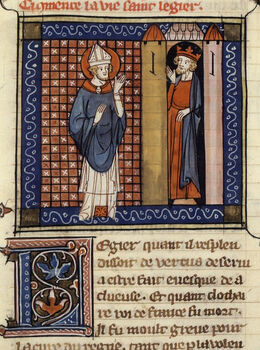 Cy commence la vie saint legier.
Legier quant il resplen
dissoit de vertus deserui
a estre fait euesque de a
clueuse. Et quant clotha
re roi de france fu mort.
Il fu moult greue pour
la cure du regne. tant que p la volen